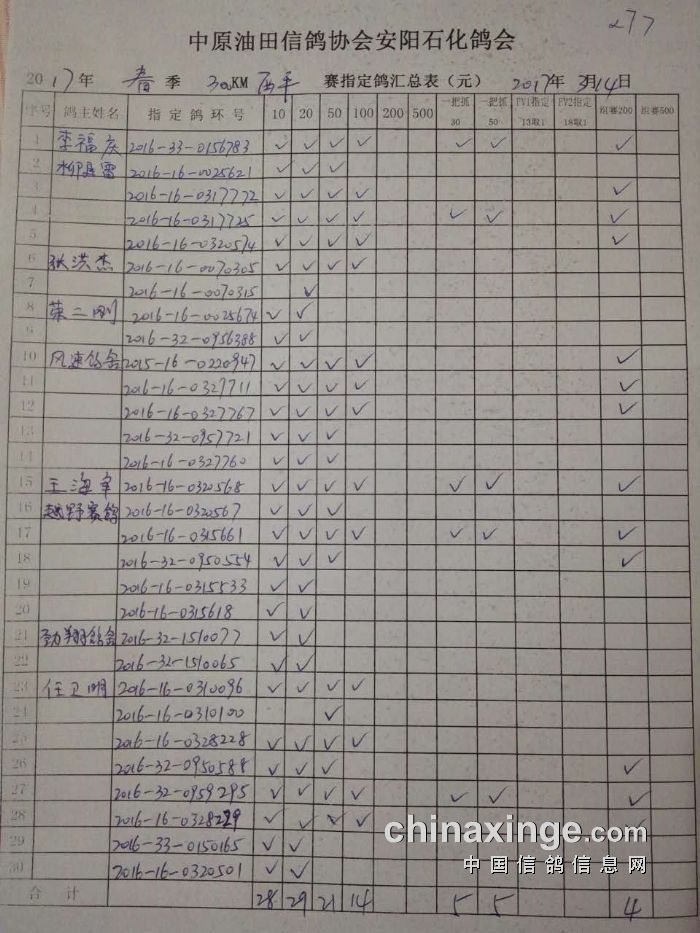 277
中原油田信鸽协会安阳石化鸽会
2017年 春季 300KM 西平 赛指定鸽汇总表（元） 2017年3月14日
序号 鸽主姓名 指定鸽环号 10 20 50 100 200 500 一把抓30 一把抓50 FV1指定13取1 FV2指定18取1 组赛200 组赛500
1 李福庆 2016-33-0156783 ✓ ✓ ✓ ✓ ✓ ✓ ✓
2 2016-16-0025621 ✓ ✓ ✓
3 2016-16-0317772 ✓ ✓ ✓ ✓ ✓
4 2016-16-0317725 ✓ ✓ ✓ ✓ ✓ ✓ ✓
5 2016-16-0320574 ✓ ✓ ✓ ✓ ✓
6 张洪杰 2016-16-0070305 ✓ ✓ ✓ ✓
7 2016-16-0070315 ✓
8 荣二刚 2016-16-0025674 ✓ ✓
9 2016-32-0956388 ✓ ✓
10 风速鸽舍 2015-16-0220947 ✓ ✓ ✓ ✓ ✓
11 2016-16-0327711 ✓ ✓ ✓ ✓ ✓
12 2016-16-0327767 ✓ ✓ ✓ ✓ ✓
13 2016-32-0957721 ✓ ✓ ✓
14 2016-16-0327760 ✓ ✓ ✓
15 王海军 2016-16-0320568 ✓ ✓ ✓ ✓ ✓ ✓ ✓
16 越野赛鸽 2016-16-0320567 ✓ ✓ ✓
17 2016-16-0315661 ✓ ✓ ✓ ✓ ✓ ✓ ✓
18 2016-32-0950554 ✓ ✓ ✓ ✓
19 2016-16-0315533 ✓ ✓
20 2016-16-0315618 ✓ ✓
21 劲翔鸽舍 2016-32-1510077 ✓ ✓
22 2016-32-1510065 ✓ ✓
23 任卫明 2016-16-0310096 ✓ ✓ ✓ ✓
24 2016-16-0310100 ✓
25 2016-16-0328228 ✓ ✓ ✓ ✓
26 2016-32-0950588 ✓ ✓ ✓ ✓
27 2016-32-0959295 ✓ ✓ ✓ ✓ ✓ ✓ ✓
28 2016-16-0328229 ✓ ✓ ✓ ✓ ✓
29 2016-33-0150165 ✓ ✓
30 2016-16-0320501 ✓ ✓
合计 28 29 21 14 5 5 4
chinaxinge.com
中国信鸽信息网